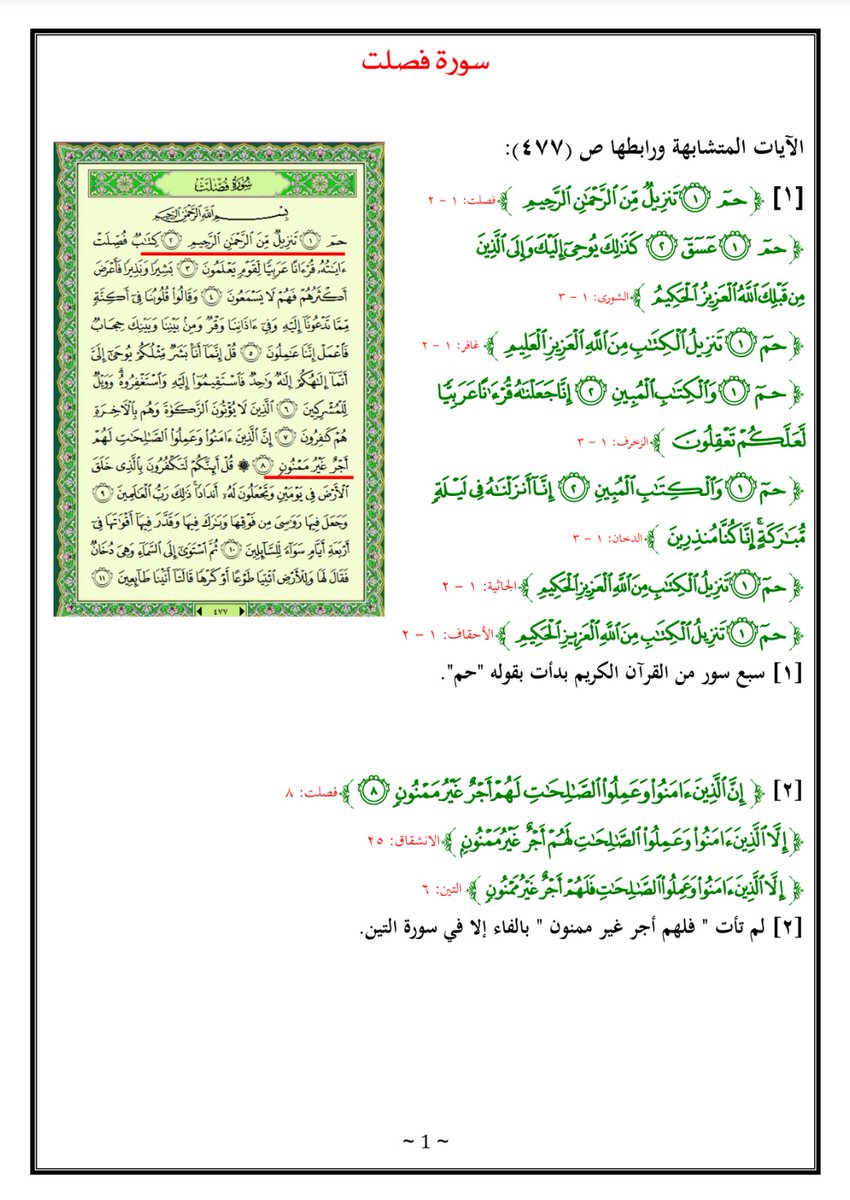 سورة فصلت
الآيات المتشابهة ورابطها ص (٤٧٧):
[١] ﴿ حمٓ ١ تَنزِيلٌ مِّنَ ٱلرَّحْمَٰنِ ٱلرَّحِيمِ ﴾ فصلت: ١ - ٢
﴿ حمٓ ١ عٓسٓقٓ ٢ كَذَٰلِكَ يُوحِىٓ إِلَيْكَ وَإِلَى ٱلَّذِينَ
مِن قَبْلِكَ ٱللَّهُ ٱلْعَزِيزُ ٱلْحَكِيمُ ﴾ الشورى: ١ - ٣
﴿ حمٓ ١ تَنزِيلُ ٱلْكِتَٰبِ مِنَ ٱللَّهِ ٱلْعَزِيزِ ٱلْعَلِيمِ ﴾ غافر: ١ - ٢
﴿ حمٓ ١ وَٱلْكِتَٰبِ ٱلْمُبِينِ ٢ إِنَّا جَعَلْنَٰهُ قُرْءَٰنًا عَرَبِيًّا
لَّعَلَّكُمْ تَعْقِلُونَ ﴾ الزخرف: ١ - ٣
﴿ حمٓ ١ وَٱلْكِتَٰبِ ٱلْمُبِينِ ٢ إِنَّآ أَنزَلْنَٰهُ فِى لَيْلَةٍ
مُّبَٰرَكَةٍ ۚ إِنَّا كُنَّا مُنذِرِينَ ﴾ الدخان: ١ - ٣
﴿ حمٓ ١ تَنزِيلُ ٱلْكِتَٰبِ مِنَ ٱللَّهِ ٱلْعَزِيزِ ٱلْحَكِيمِ ﴾ الجاثية: ١ - ٢
﴿ حمٓ ١ تَنزِيلُ ٱلْكِتَٰبِ مِنَ ٱللَّهِ ٱلْعَزِيزِ ٱلْحَكِيمِ ﴾ الأحقاف: ١ - ٢
[١] سبع سور من القرآن الكريم بدأت بقوله "حم".
سُورَةُ فُصِّلَتْ
بِسْمِ ٱللَّهِ ٱلرَّحْمَٰنِ ٱلرَّحِيمِ
حمٓ ١ تَنزِيلٌ مِّنَ ٱلرَّحْمَٰنِ ٱلرَّحِيمِ ٢ كِتَٰبٌ فُصِّلَتْ
ءَايَٰتُهُۥ قُرْءَانًا عَرَبِيًّا لِّقَوْمٍ يَعْلَمُونَ ٣ بَشِيرًا وَنَذِيرًا فَأَعْرَضَ
أَكْثَرُهُمْ فَهُمْ لَا يَسْمَعُونَ ٤ وَقَالُوا۟ قُلُوبُنَا فِىٓ أَكِنَّةٍ
مِّمَّا تَدْعُونَآ إِلَيْهِ وَفِىٓ ءَاذَانِنَا وَقْرٌ وَمِنۢ بَيْنِنَا وَبَيْنِكَ حِجَابٌ
فَٱعْمَلْ إِنَّنَا عَٰمِلُونَ ٥ قُلْ إِنَّمَآ أَنَا۠ بَشَرٌ مِّثْلُكُمْ يُوحَىٰٓ إِلَىَّ
أَنَّمَآ إِلَٰهُكُمْ إِلَٰهٌ وَٰحِدٌ فَٱسْتَقِيمُوٓا۟ إِلَيْهِ وَٱسْتَغْفِرُوهُ ۗ وَوَيْلٌ
لِّلْمُشْرِكِينَ ٦ ٱلَّذِينَ لَا يُؤْتُونَ ٱلزَّكَوٰةَ وَهُم بِٱلْءَاخِرَةِ
هُمْ كَٰفِرُونَ ٧ إِنَّ ٱلَّذِينَ ءَامَنُوا۟ وَعَمِلُوا۟ ٱلصَّٰلِحَٰتِ لَهُمْ
أَجْرٌ غَيْرُ مَمْنُونٍ ٨ ۞ قُلْ أَئِنَّكُمْ لَتَكْفُرُونَ بِٱلَّذِى خَلَقَ
ٱلْأَرْضَ فِى يَوْمَيْنِ وَتَجْعَلُونَ لَهُۥٓ أَندَادًا ۚ ذَٰلِكَ رَبُّ ٱلْعَٰلَمِينَ ٩
وَجَعَلَ فِيهَا رَوَٰسِىَ مِن فَوْقِهَا وَبَٰرَكَ فِيهَا وَقَدَّرَ فِيهَآ أَقْوَٰتَهَا فِىٓ
أَرْبَعَةِ أَيَّامٍ سَوَآءً لِّلسَّآئِلِينَ ١٠ ثُمَّ ٱسْتَوَىٰٓ إِلَى ٱلسَّمَآءِ وَهِىَ دُخَانٌ
فَقَالَ لَهَا وَلِلْأَرْضِ ٱئْتِيَا طَوْعًا أَوْ كَرْهًا قَالَتَآ أَتَيْنَا طَآئِعِينَ ١١
٤٧٧
[٢] ﴿ إِنَّ ٱلَّذِينَ ءَامَنُوا۟ وَعَمِلُوا۟ ٱلصَّٰلِحَٰتِ لَهُمْ أَجْرٌ غَيْرُ مَمْنُونٍ ٨ ﴾ فصلت: ٨
﴿ إِلَّا ٱلَّذِينَ ءَامَنُوا۟ وَعَمِلُوا۟ ٱلصَّٰلِحَٰتِ لَهُمْ أَجْرٌ غَيْرُ مَمْنُونٍ ﴾ الانشقاق: ٢٥
﴿ إِلَّا ٱلَّذِينَ ءَامَنُوا۟ وَعَمِلُوا۟ ٱلصَّٰلِحَٰتِ فَلَهُمْ أَجْرٌ غَيْرُ مَمْنُونٍ ﴾ التين: ٦
[٢] لم تأت " فلهم أجر غير ممنون " بالفاء إلا في سورة التين.
~ 1 ~